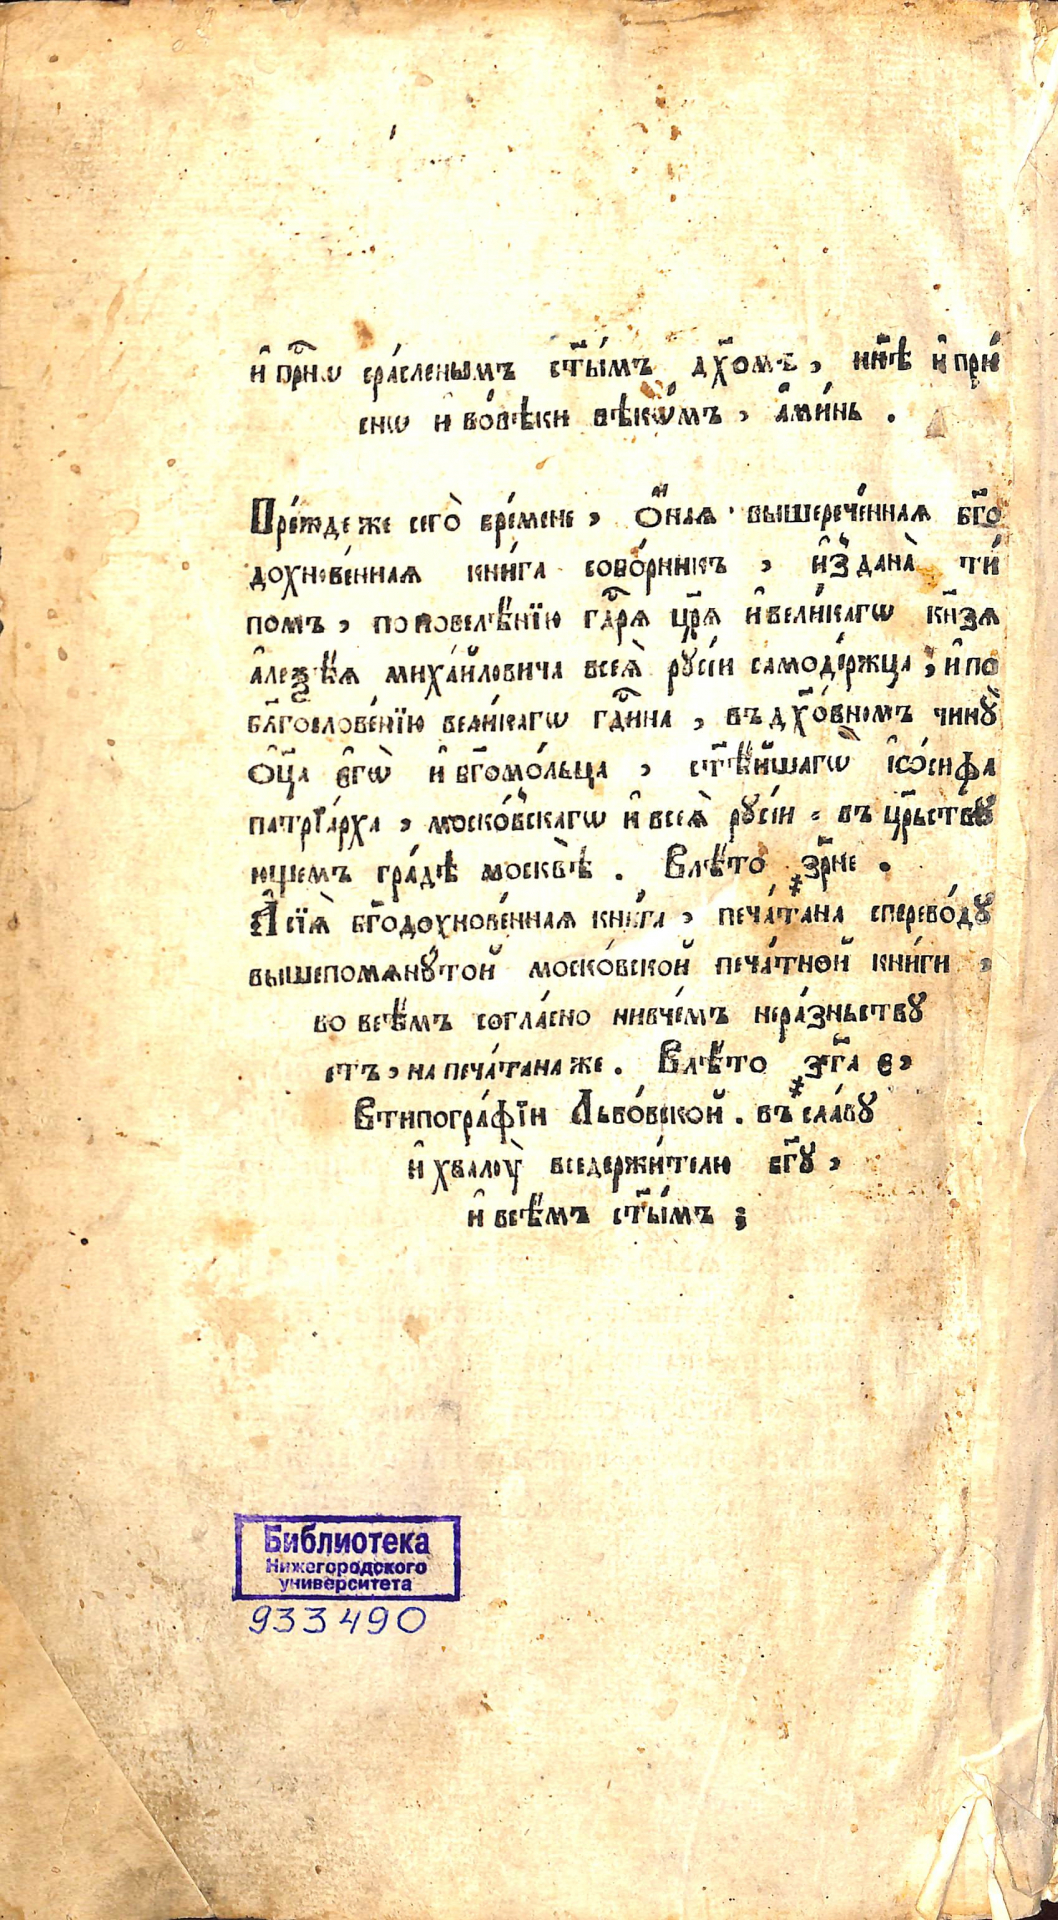 и҆ при́снѡ сра́сленымъ ст҃ы́мъ дх҃омъ, нн҃ѣ и҆ при́
снѡ и҆ во́вѣки вѣкѡ́мъ, а҆ми́нь.
Пре́жде же сего̀ вре́мене, ѻ҆́ная вышерече́нная бг҃о
дохнове́нная кни́га собо́рникъ, и҆здана̀ ти́
помъ, по повелѣ́нїю гдⷭ҇рѧ цр҃ѧ и҆ вели́кагѡ кн҃зѧ
а҆леѯѣ́ѧ миха́йловича всеѧ̀ русі́и самоде́ржца, и҆ по
бл҃гослове́нїю вели́кагѡ гдⷭ҇ина, въ дх҃о́вномъ чинꙋ̀
ѻ҆ц҃а є҆гѡ̀ и҆ бг҃омо́льца, ст҃ѣ́йшагѡ і҆ѡ́сифа
патрїа́рха, моско́вскагѡ и҆ всеѧ̀ русі́и. въ црⷭ҇твꙋ
ющемъ гра́дѣ москвѣ̀. Влѣ́то ҂зрне.
А҆ сїѧ̀ бг҃одохнове́ннаѧ кни́га, печа́тана сперево́дꙋ
вышепомѧнꙋ́той моско́вской печа́тной кни́ги,
во все́мъ согла́сно нивче́мъ нера́зньствꙋ
етъ, на печа́тана же. Влѣ́то ҂зс҃га е,
Втипогра́фїи Льво́вской. въ сла́вꙋ
и҆ хвалоу̀ вседержи́телю бг҃ꙋ,
и҆ всѣ́мъ ст҃ы́мъ ;
Библиотека
Нижегородского
университета
933490